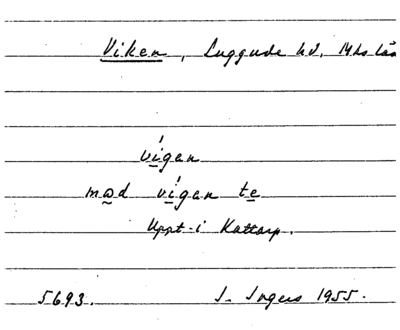 Viken, Luggude hd, Mhs län
vígan
mæd vígan te
Uppt. i Kattarp.
5693. I. Ingers 1955.